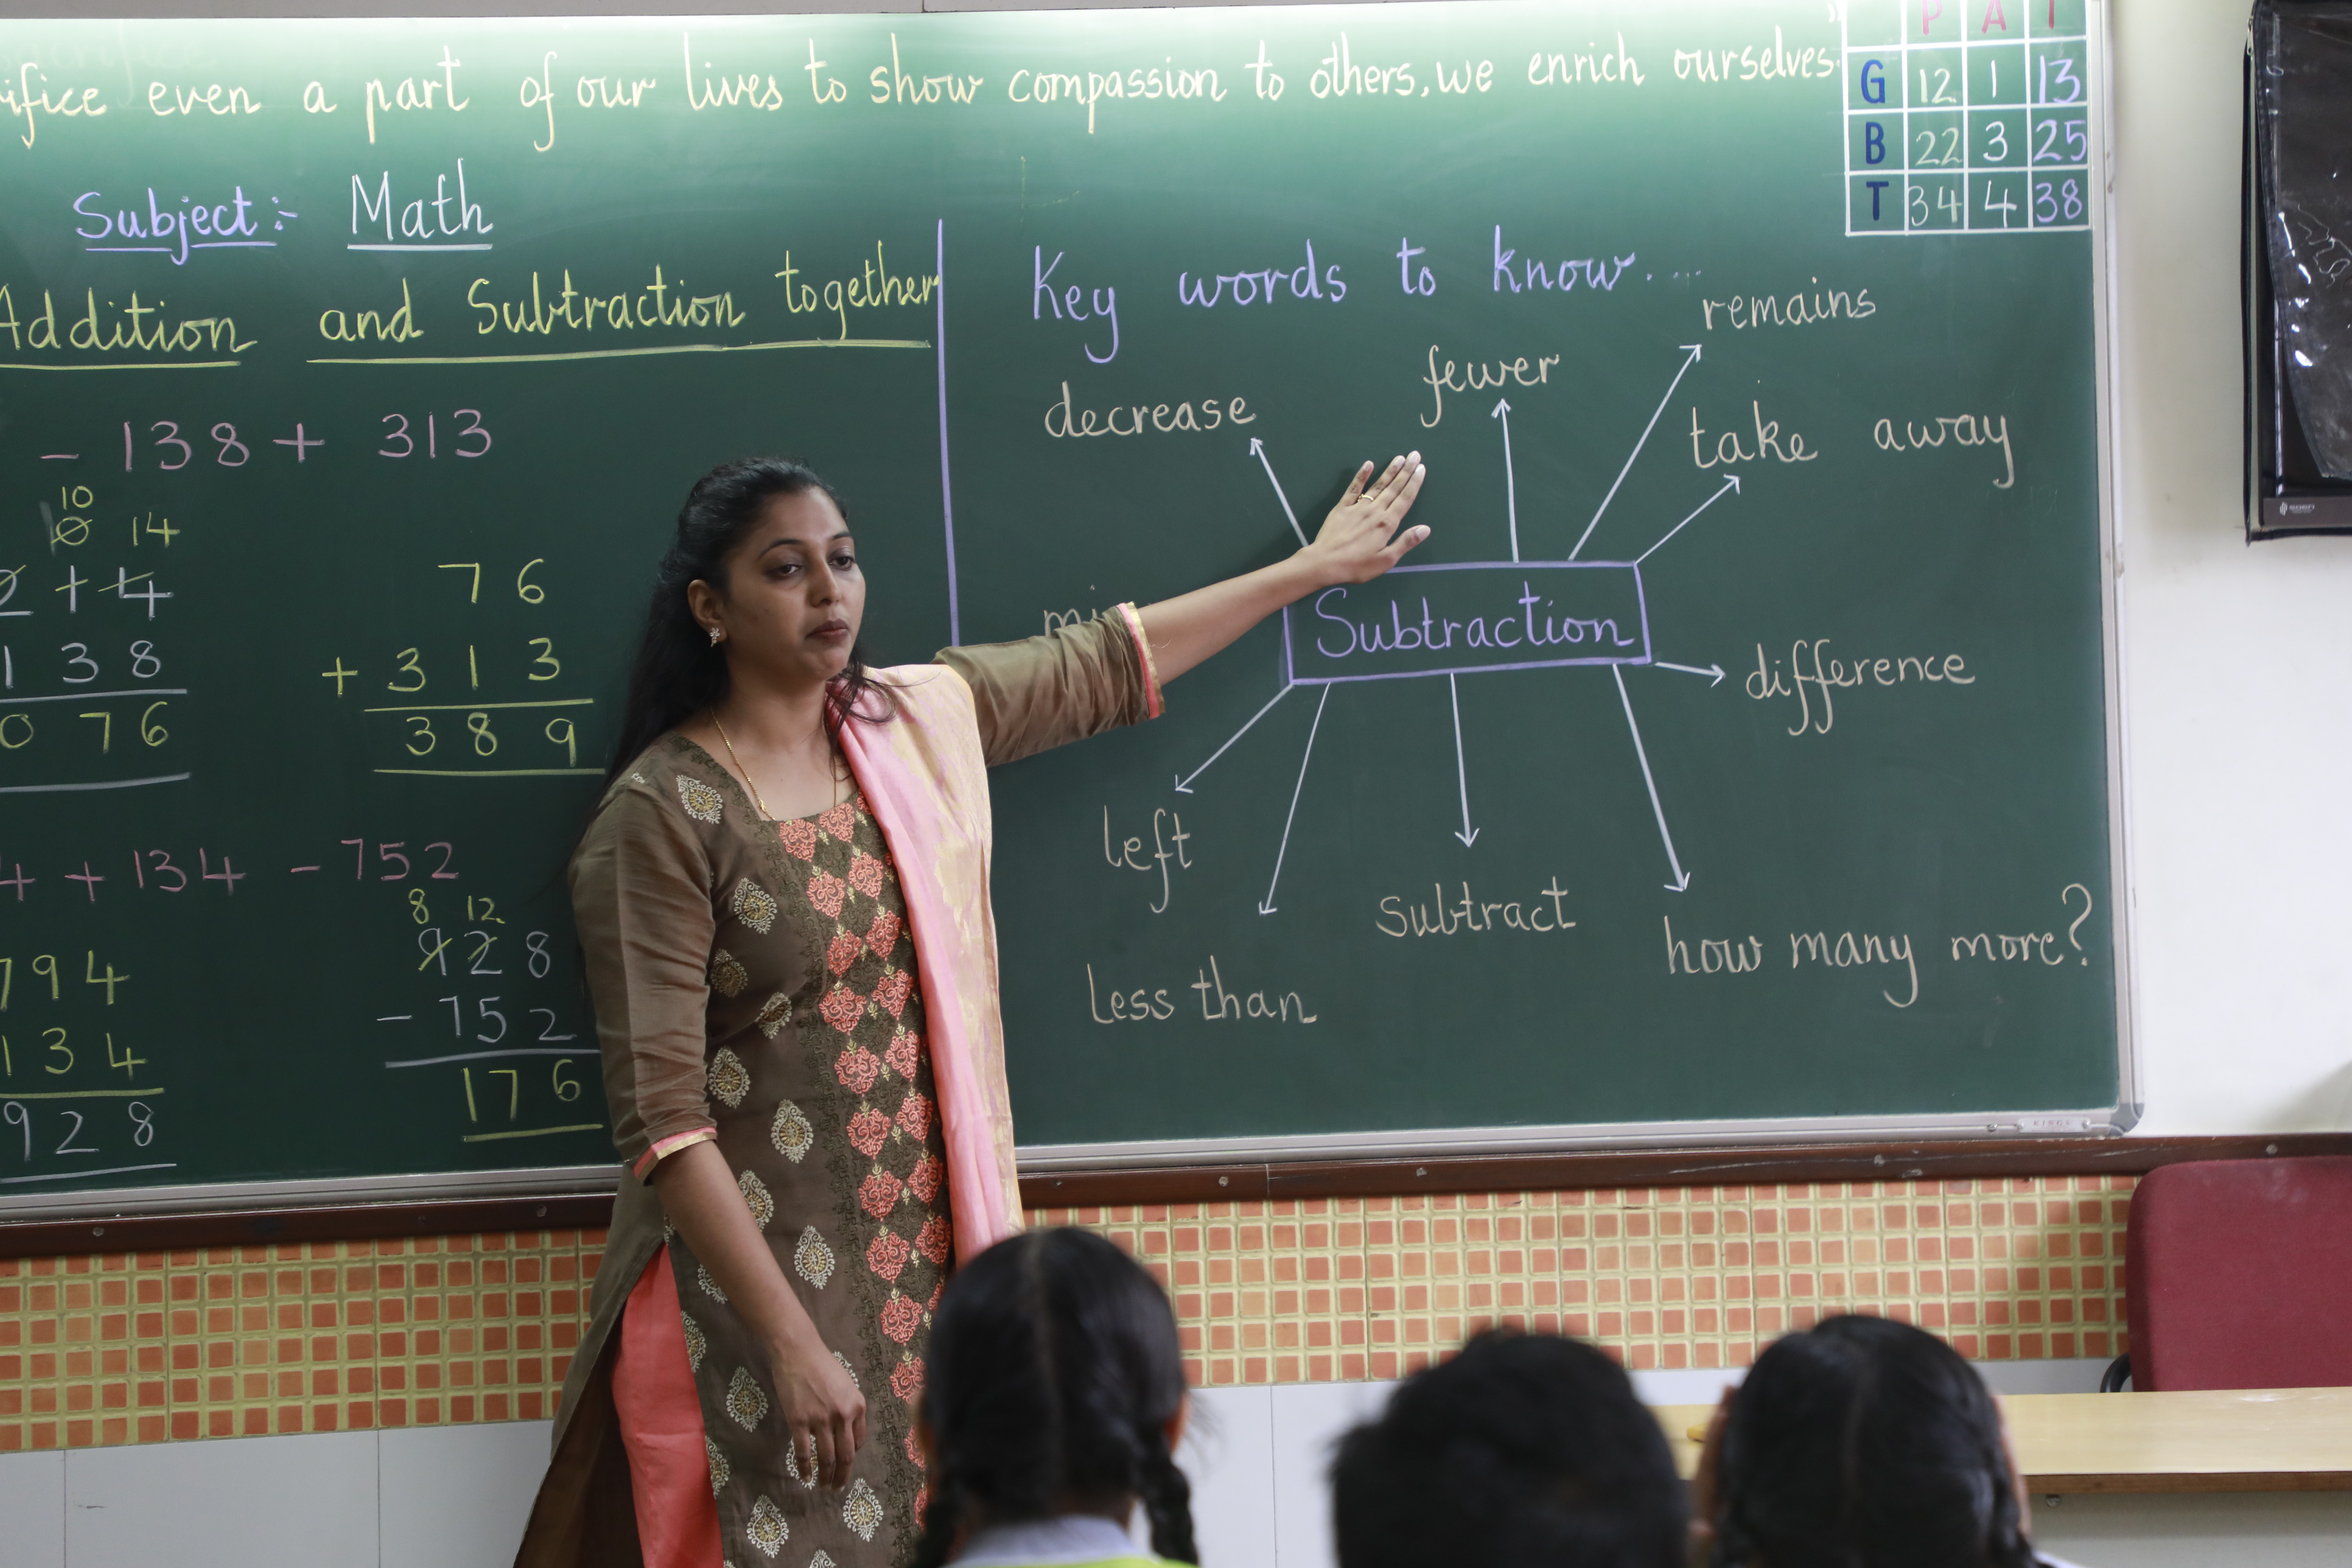 even a part of our lives to show compassion to others, we enrich ourselves."
P A T
G 12 1 13
B 22 3 25
T 34 4 38
Subject:- Math
Addition and Subtraction together
- 138 + 313
10
14
2 1 4
1 3 8
0 7 6
7 6
+ 3 1 3
3 8 9
4 + 134 - 752
7 9 4
1 3 4
9 2 8
8 12
9 2 8
- 7 5 2
1 7 6
Key words to know....
remains
fewer
decrease
take away
Subtraction
difference
left
subtract
how many more?
less than